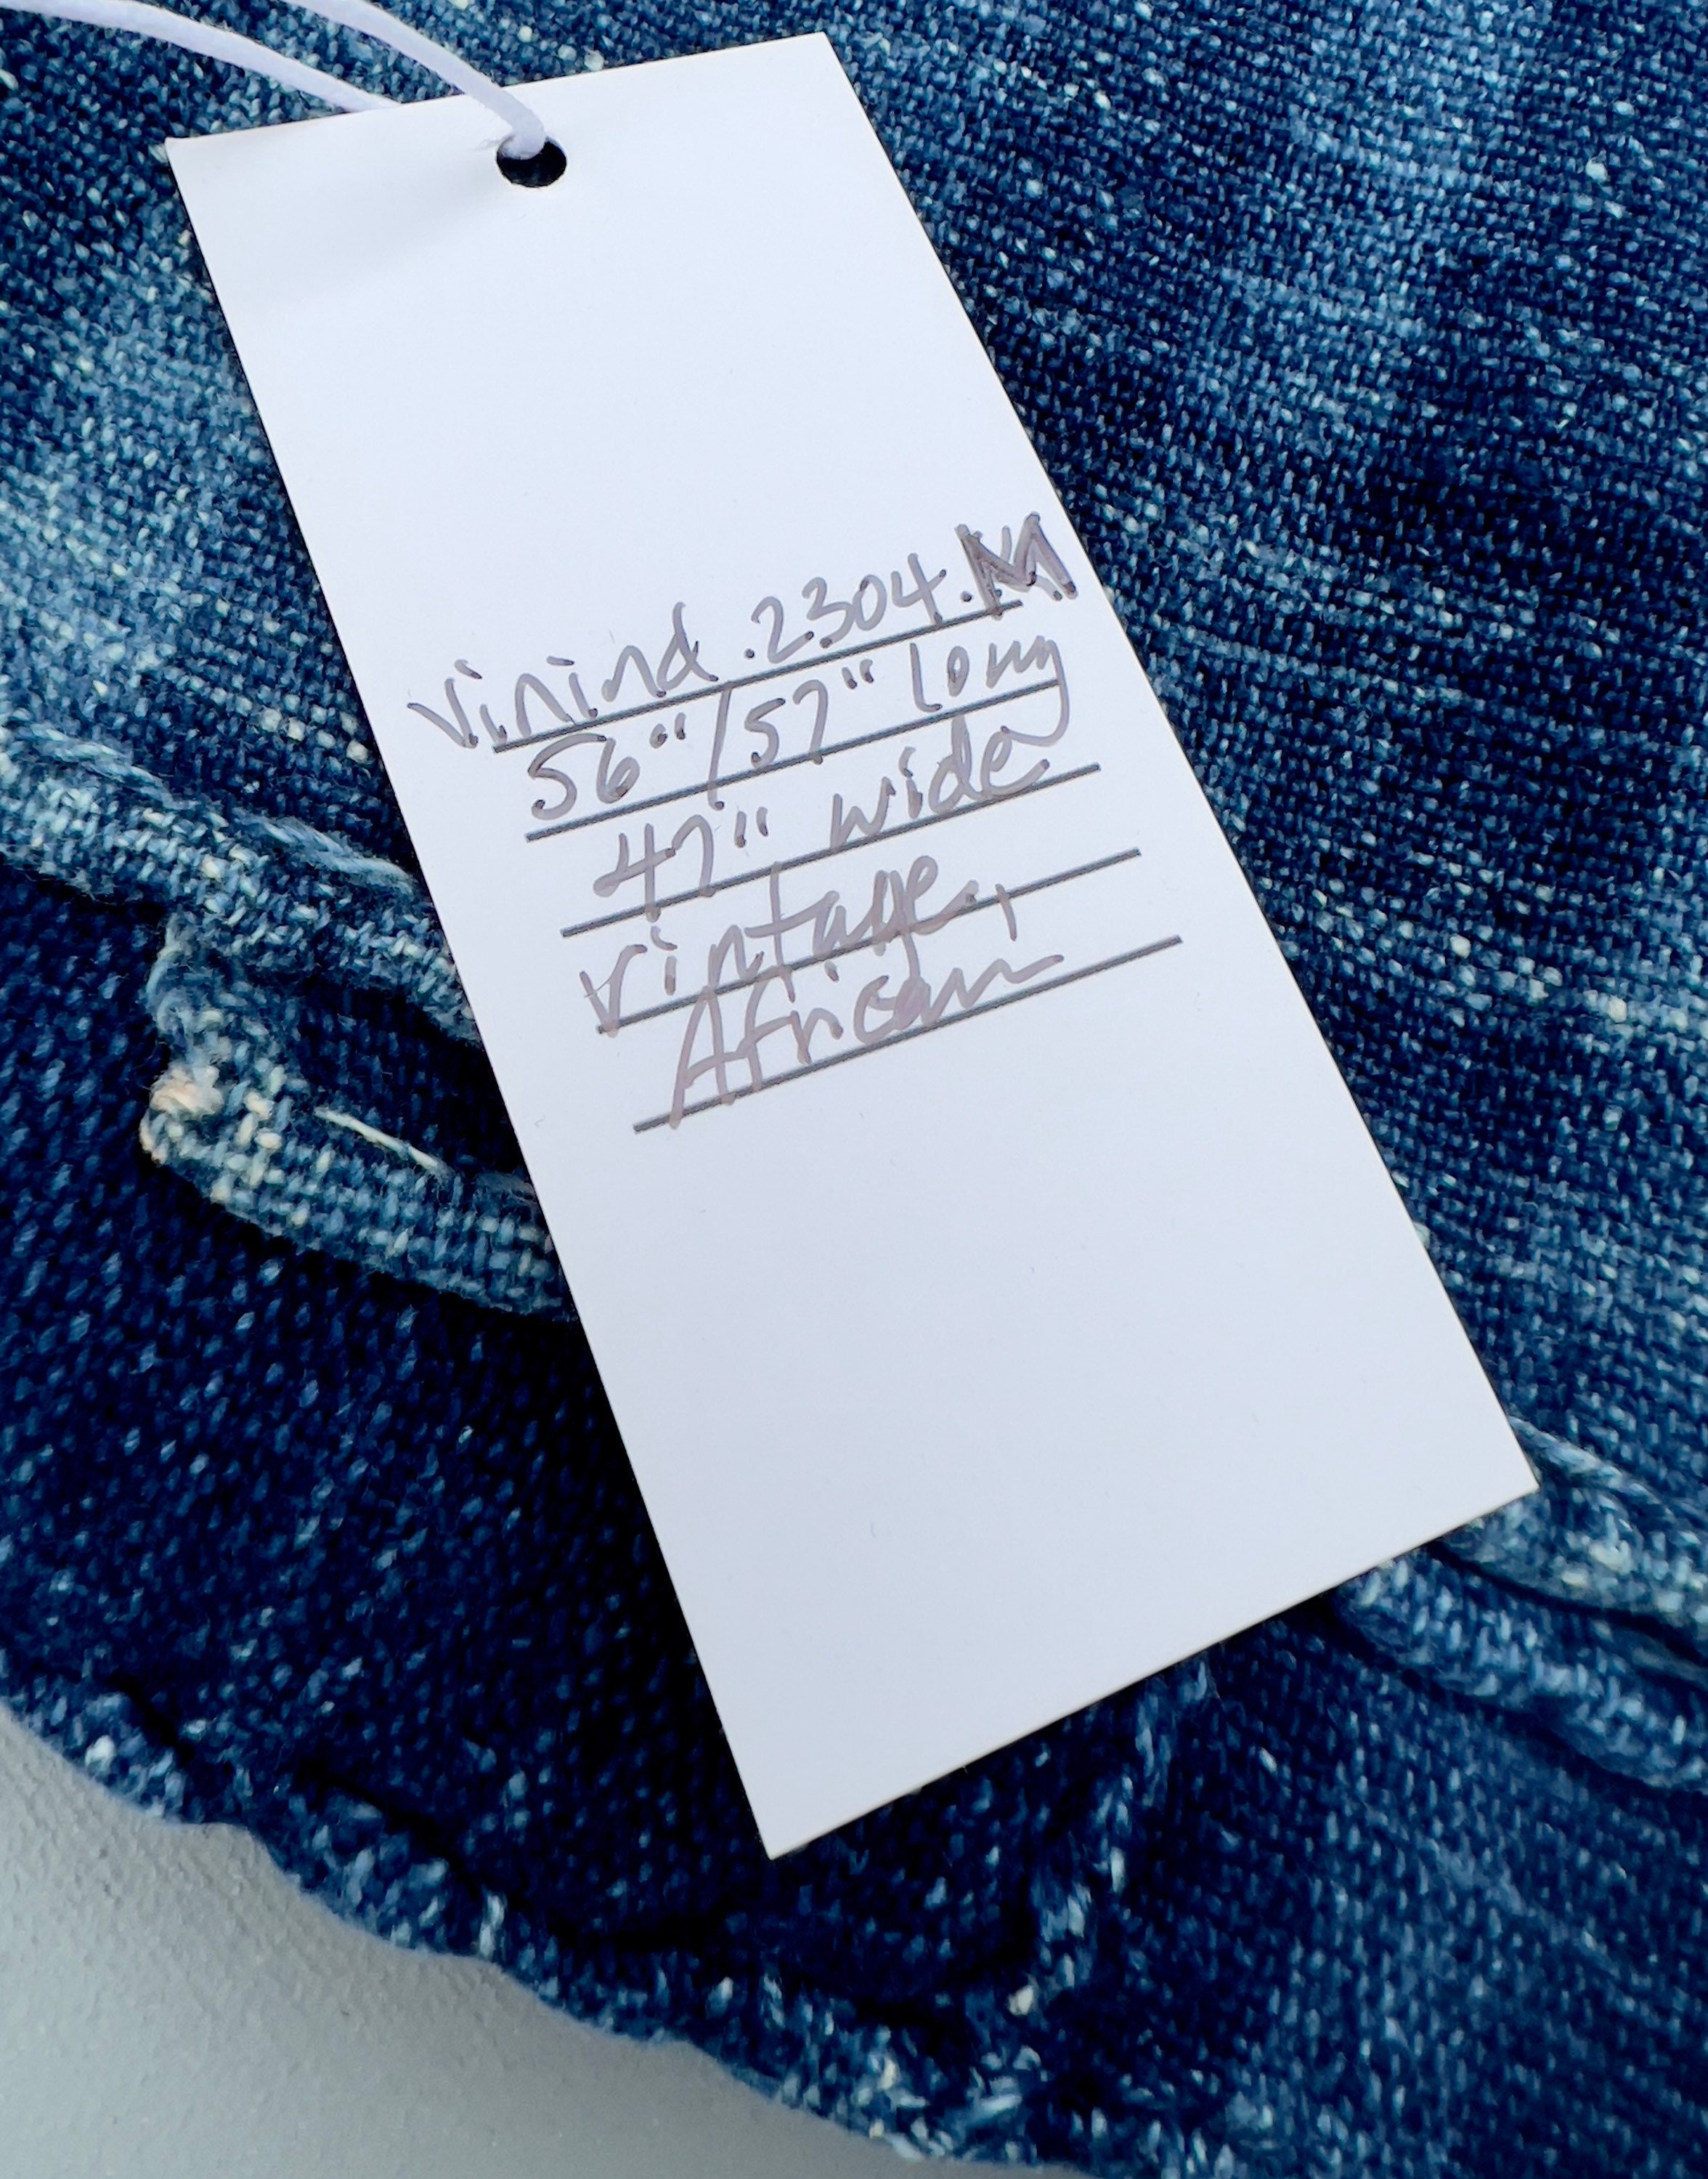 Vinind.2304.M
56"/57" long
47" wide
Vintage,
African